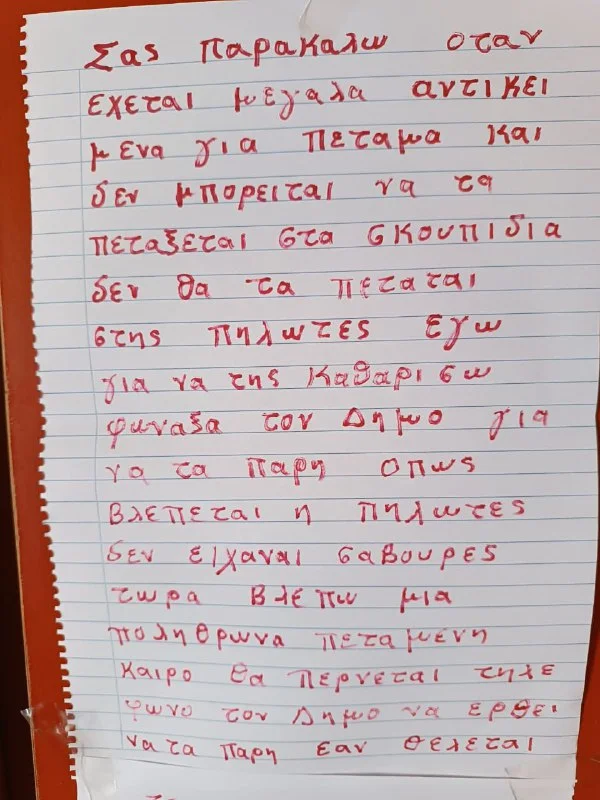 Σας παρακαλω οταν
εχεται μεγαλα αντικει
μενα για πεταμα και
δεν μπορειται να τα
πεταξεται στα σκουπιδια
δεν θα τα πεταται
στης πηλωτες εγω
για να της καθαρισω
φωναξα τον Δημο για
να τα παρη οπως
Βλεπεται η πηλωτες
δεν ειχαναι σαβουρες
τωρα Βλεπω μια
πολ��θρωνα πεταμενη
καιρο θα περνεται τηλε
φωνο τον Δημο να ερθει
να τα παρη εαν θελεται